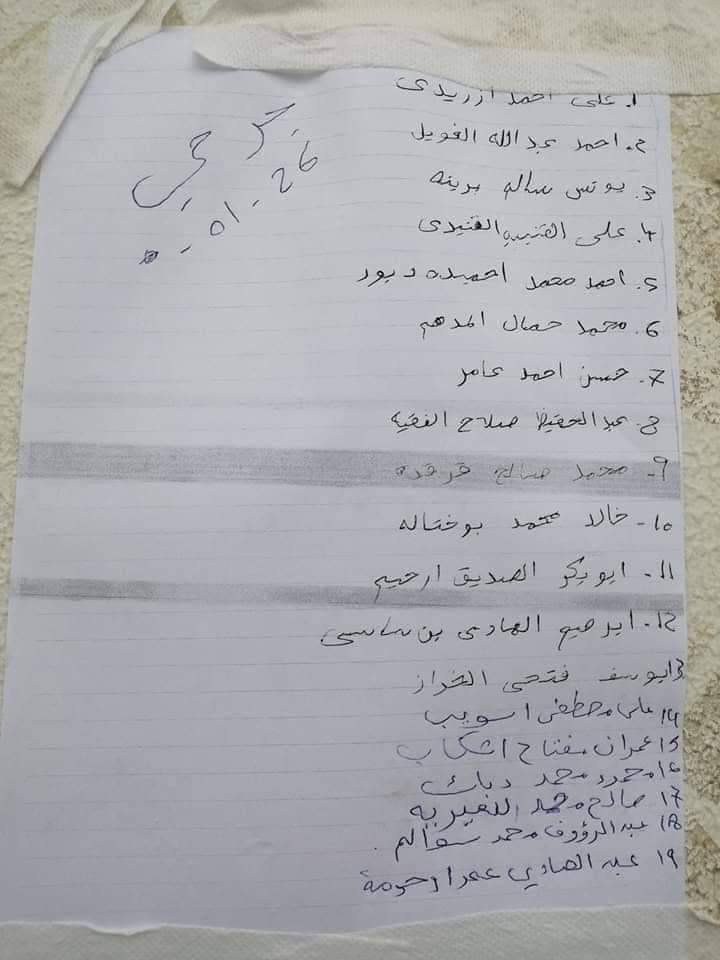 1. على احمد ازريدى
2. احمد عبد الله الغويل
3. يونس سالم برينه
4. على القنيدى
5. احمد محمد احميده دبور
6. محمد جمال المدهم
7. حسن احمد عامر
8. عبد الحفيظ صلاح الفقيه
9- محمد صالح قرقده
10- خالد محمد بوختاله
11- ابوبكر الصديق ارحيم
12- ابرهيم الهادى بن ساسى
13 يوسف فتحى الخراز
14 على مصطفى اسويب
15 عمران مفتاح اشكاب
16 محمود محمد دباك
17 صالح محمد
18 عبد الرؤوف محمد سوالم
19 عبد الهادي عمر ارحومة
01-26